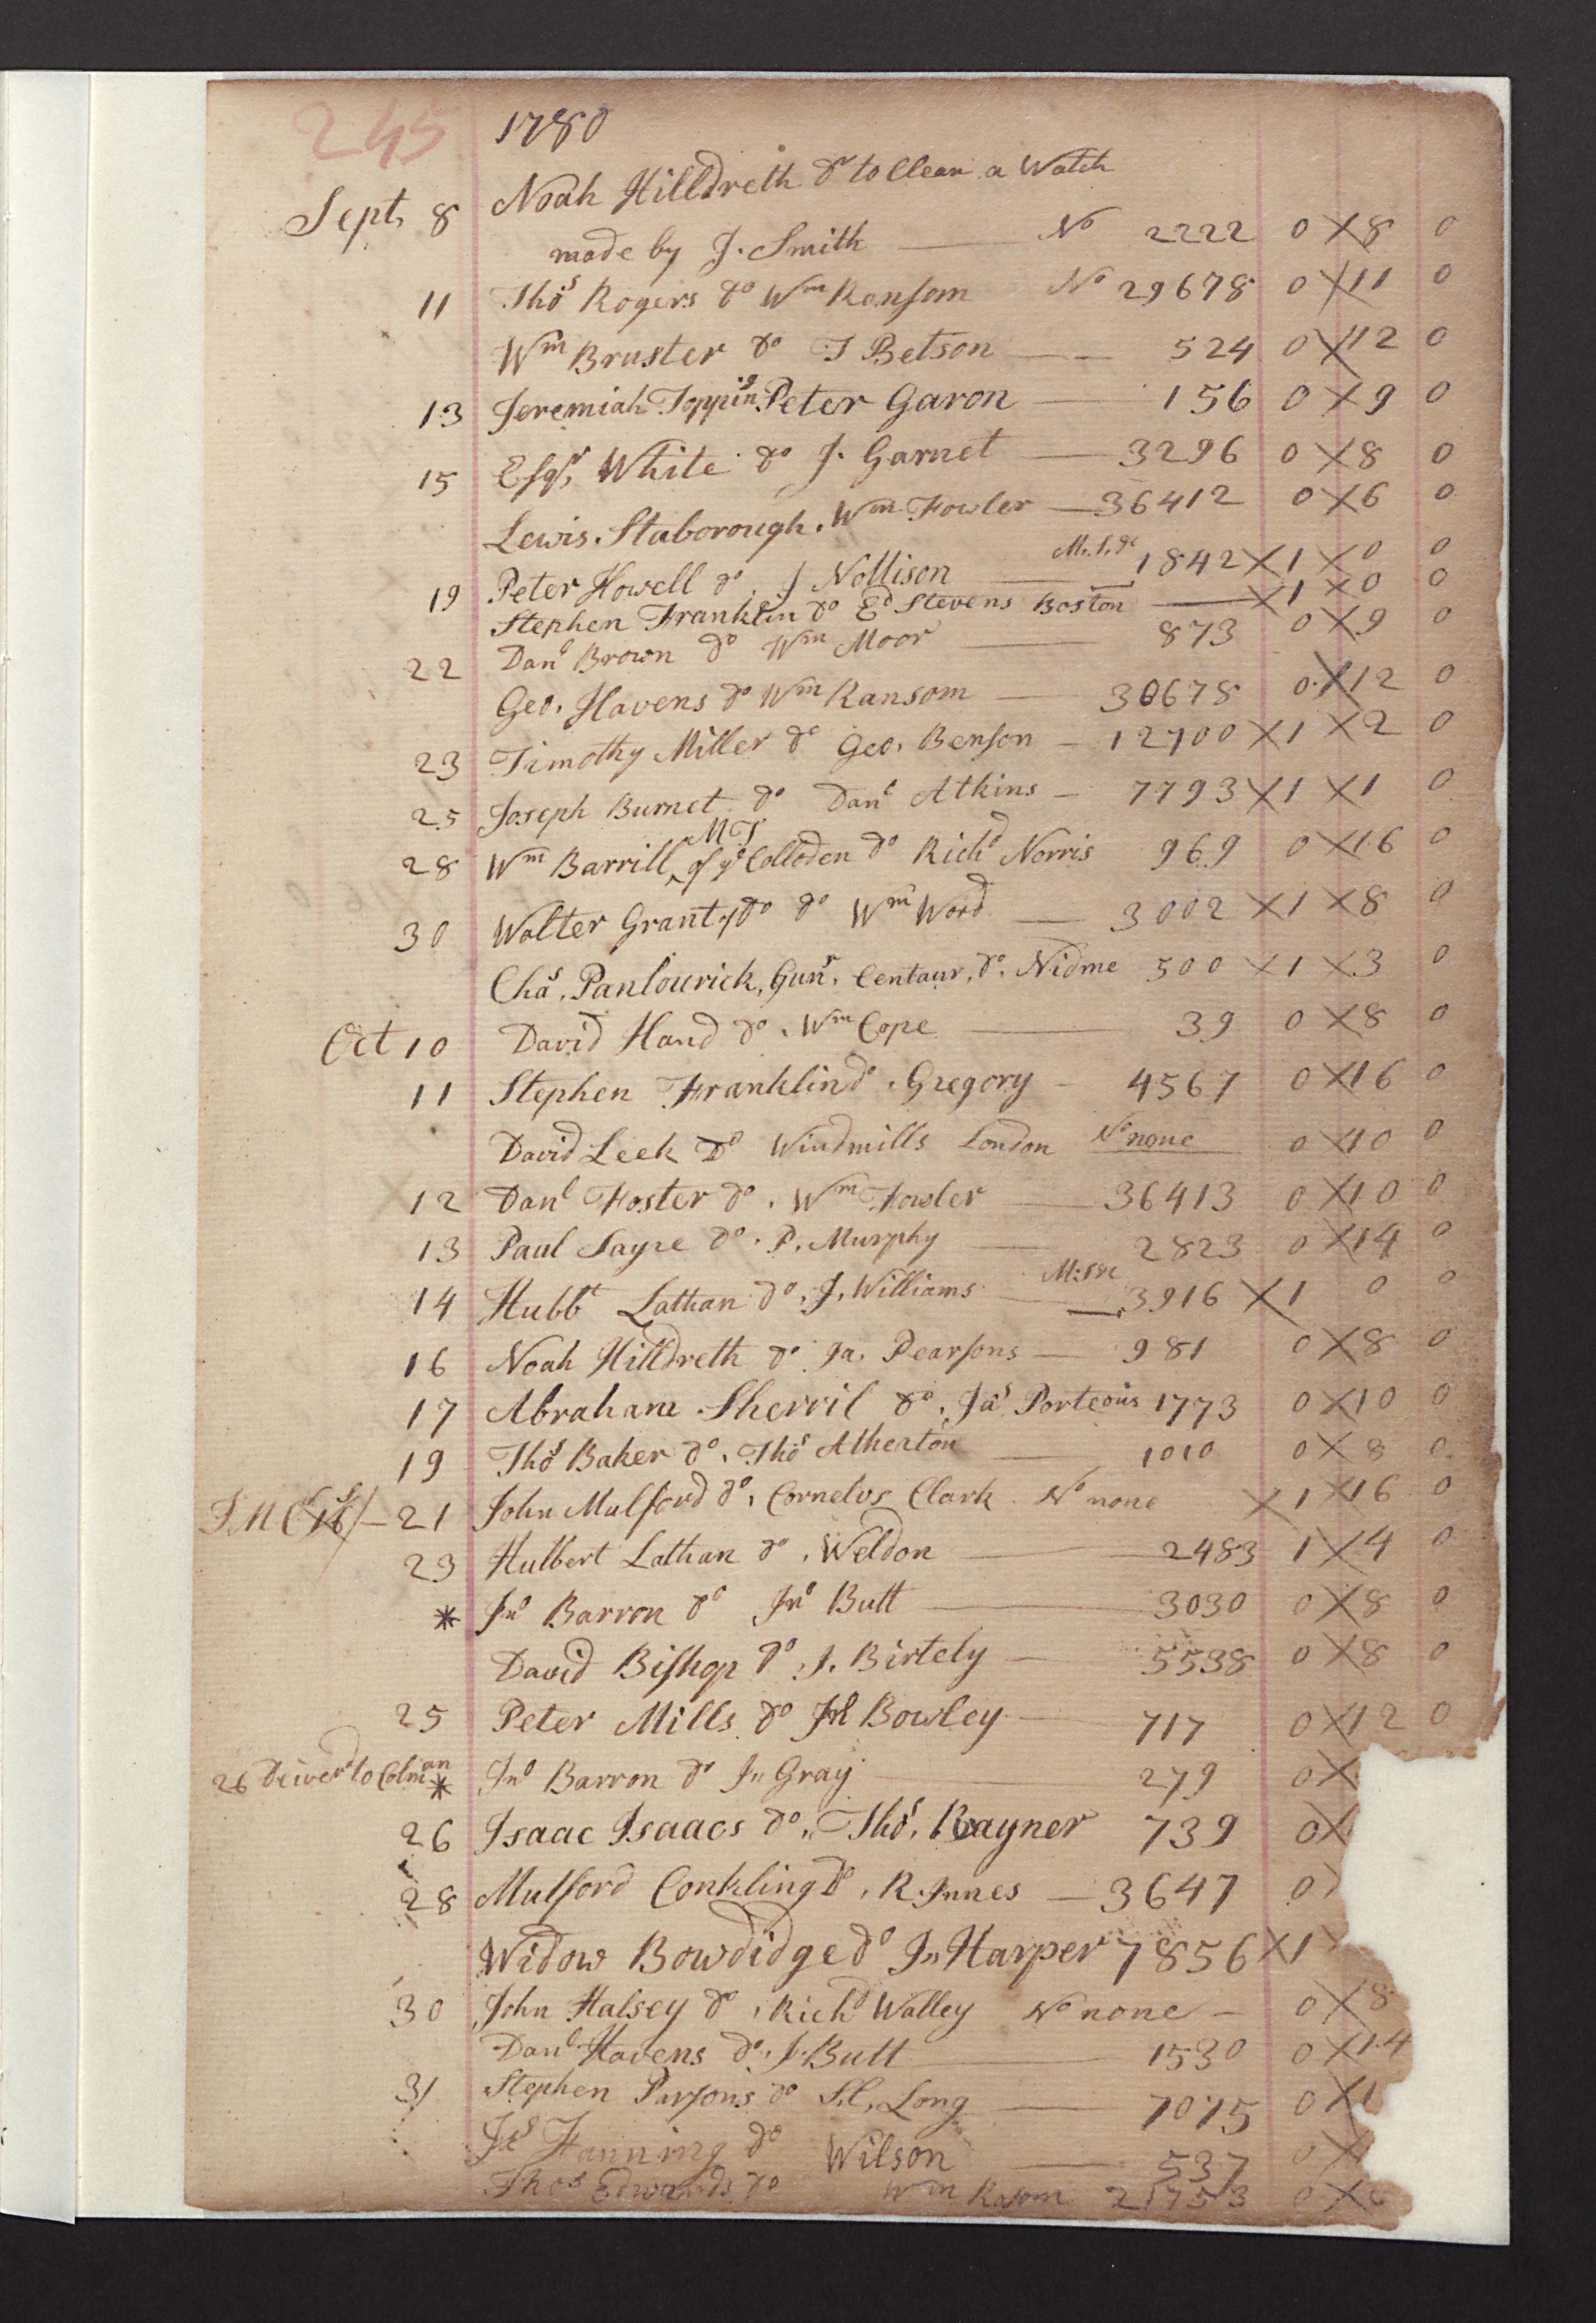 245 1780
Sept. 8 Noah Hilldreth Dr to Clean a Watch
made by J. Smith No 2222 0 8 0
11 Thos Rogers Do Wm Ransom No 29678 0 11 0
Wm Bruster Do T Betson 524 0 12 0
13 Jeremiah Topping Peter Garon 156 0 9 0
15 Esqr. White Do J. Garnet 3296 0 8 0
Lewis Staborough. Wm Fowler 36412 0 6 0
19 Peter Howell do. J Nollison M.S.&c 1842 1 0 0
Stephen Franklin Do Ed Stevens Boston 1 0 0
22 Danl Brown Do Wm Moor 873 0 9 0
Geo. Havens Do Wm Ransom 30678 0 12 0
23 Timothy Miller Do Geo. Benson 12700 1 2 0
25 Joseph Burnet Do Danl Atkins 7793 1 1 0
28 Wm Barrill MS of ye Colloden Do Richd Norris 969 0 16 0
30 Walter Grant of do Do Wm Word 3002 1 8 0
Chas. Panlourick, Gunr. Centaur, Do. Nidme 500 1 3 0
Oct 10 David Hand Do. Wm Cope 39 0 8 0
11 Stephen Franklin Do. Gregory 4567 0 16 0
David Leek Do Windmills London No none 0 10 0
12 Danl Foster Do. Wm Fowler 36413 0 10 0
13 Paul Sayre Do. P. Murphy 2823 0 14 0
14 Hubbt Lathan Do. J. Williams M:S&c 3916 1 0 0
16 Noah Hilldreth Do Ja. Pearsons 981 0 8 0
17 Abraham Sherril Do. Jas Porteous 1773 0 10 0
19 Thos Baker Do. Thos Atherton 1010 0 8 0
21 John Mulford Do. Cornelos Clark. No none 1 16 0
23 Hulbert Lathan Do. Weldon 2483 1 4 0
* Jno Barron Do Jno Butt 3030 0 8 0
David Bishop Do J. Birtely 5538 0 8 0
25 Peter Mills Do Bowley 717 0 12 0
26 Deiverd to Colman * Jno Barron Do Jn Gray 279 0
26 Isaac Isaacs Do. Thos. Rayner 739 0
28 Mulford Conkling Do. R. Innes 3647 0
Widow Bowdidge Do Jn Harper 7856 1
30 John Halsey Do. Richd Walley No none 0 8
Danl Havens Do. J. Butt 1530 0 14
31 Stephen Parsons Do S.C. Long 7075 0 1
Jas Fanning Do Wilson 537 0
Thos Edwards Do Wm Rasom 21753 0